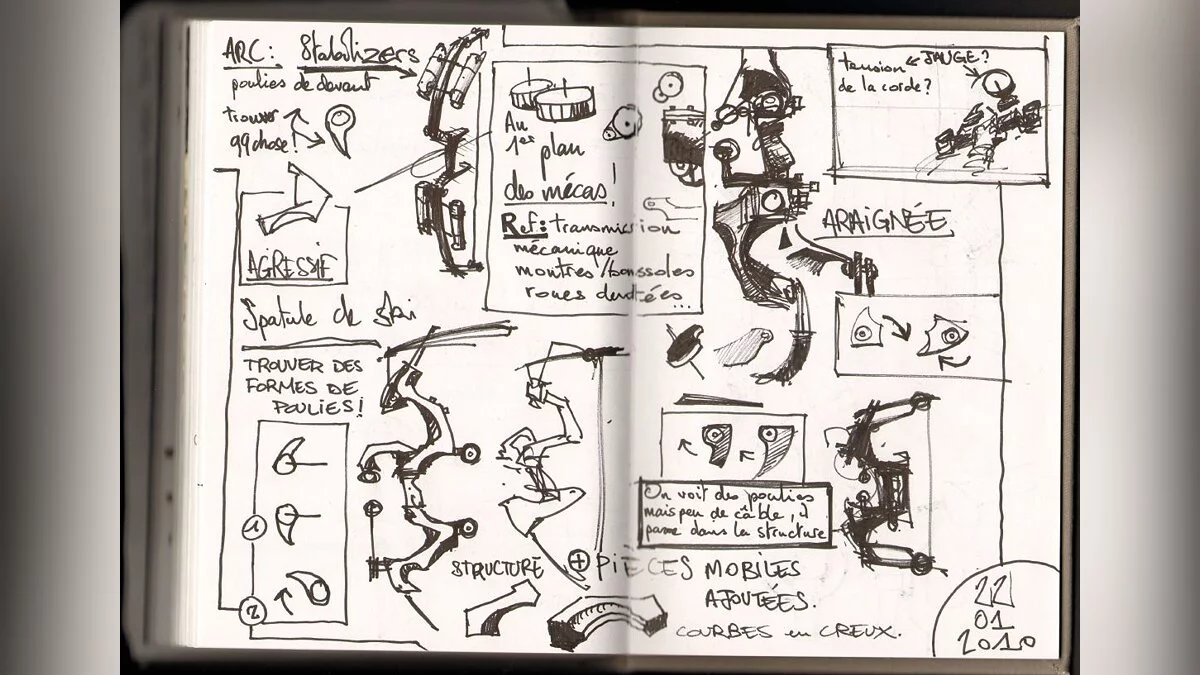 ARC: Stabilizers
poulies de devant
trouver
qqchose!
AGRESSIF
Spatule de ski
TROUVER DES
FORMES DE
POULIES!
1
2
Au
1er plan
des mécas!
Ref: transmission
mécanique
montres/boussoles
roues dentées...
tension "JAUGE?
de la corde?
ARAIGNÉE
On voit des poulies
mais peu de câble, il
passe dans la structure
STRUCTURE + PIÈCES MOBILES
AJOUTÉES.
COURBES en CREUX.
22
01
2010